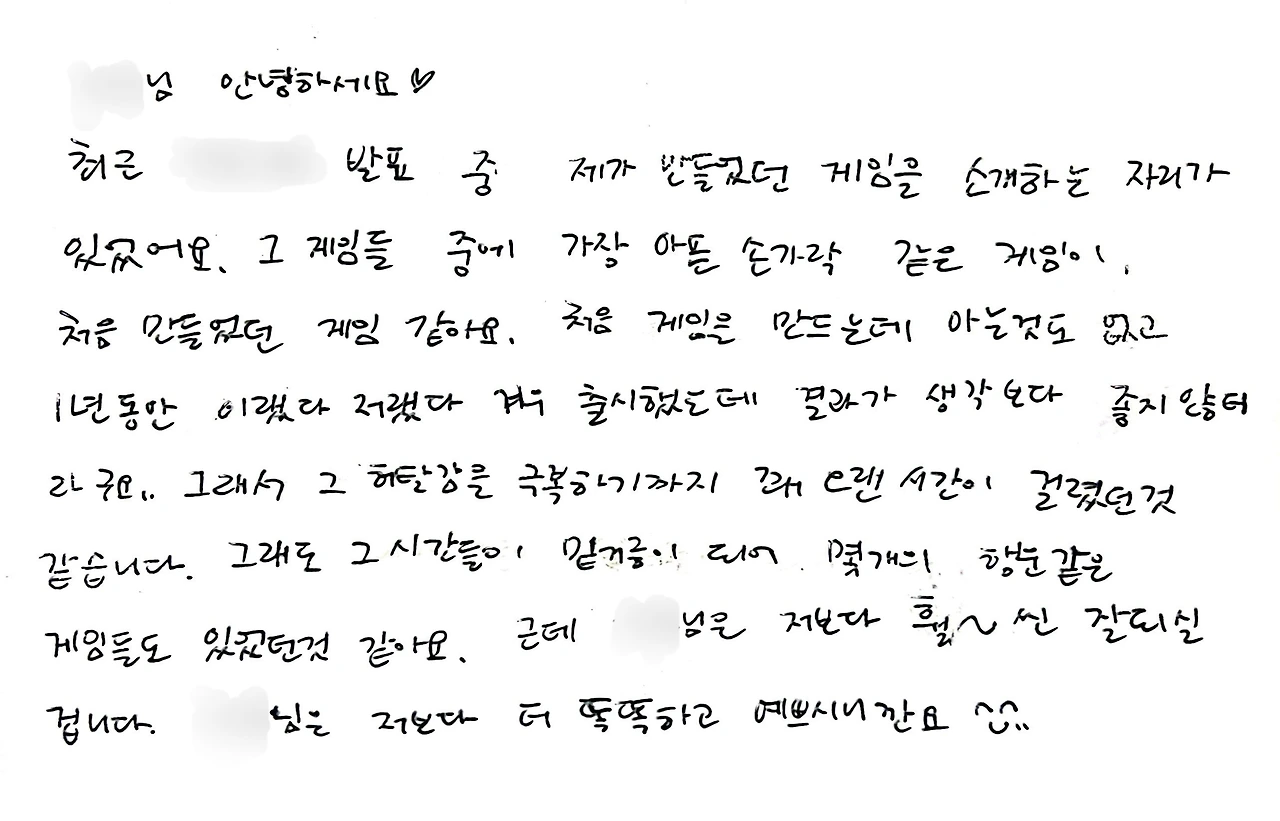 님 안녕하세요♡
최근 발표 중 제가 만들었던 게임을 소개하는 자리가
있었어요. 그 게임들 중에 가장 아픈 손가락 같은 게임이,
처음 만들었던 게임 같아요. 처음 게임을 만드는데 아는것도 없고
1년동안 이랬다 저랬다 겨우 출시했는데 결과가 생각보다 좋지 않터
라구요.. 그래서 그 허탈감을 극복하기까지 꽤 오랜 시간이 걸렸던것
같습니다. 그래도 그 시간들이 밑거름이 되어 몇개의 행운같은
게임들도 있었던것 같아요. 근데 님은 저보다 훨~씬 잘되실
겁니다. 님은 저보다 더 똑똑하고 예쁘시니깐요 ^^..